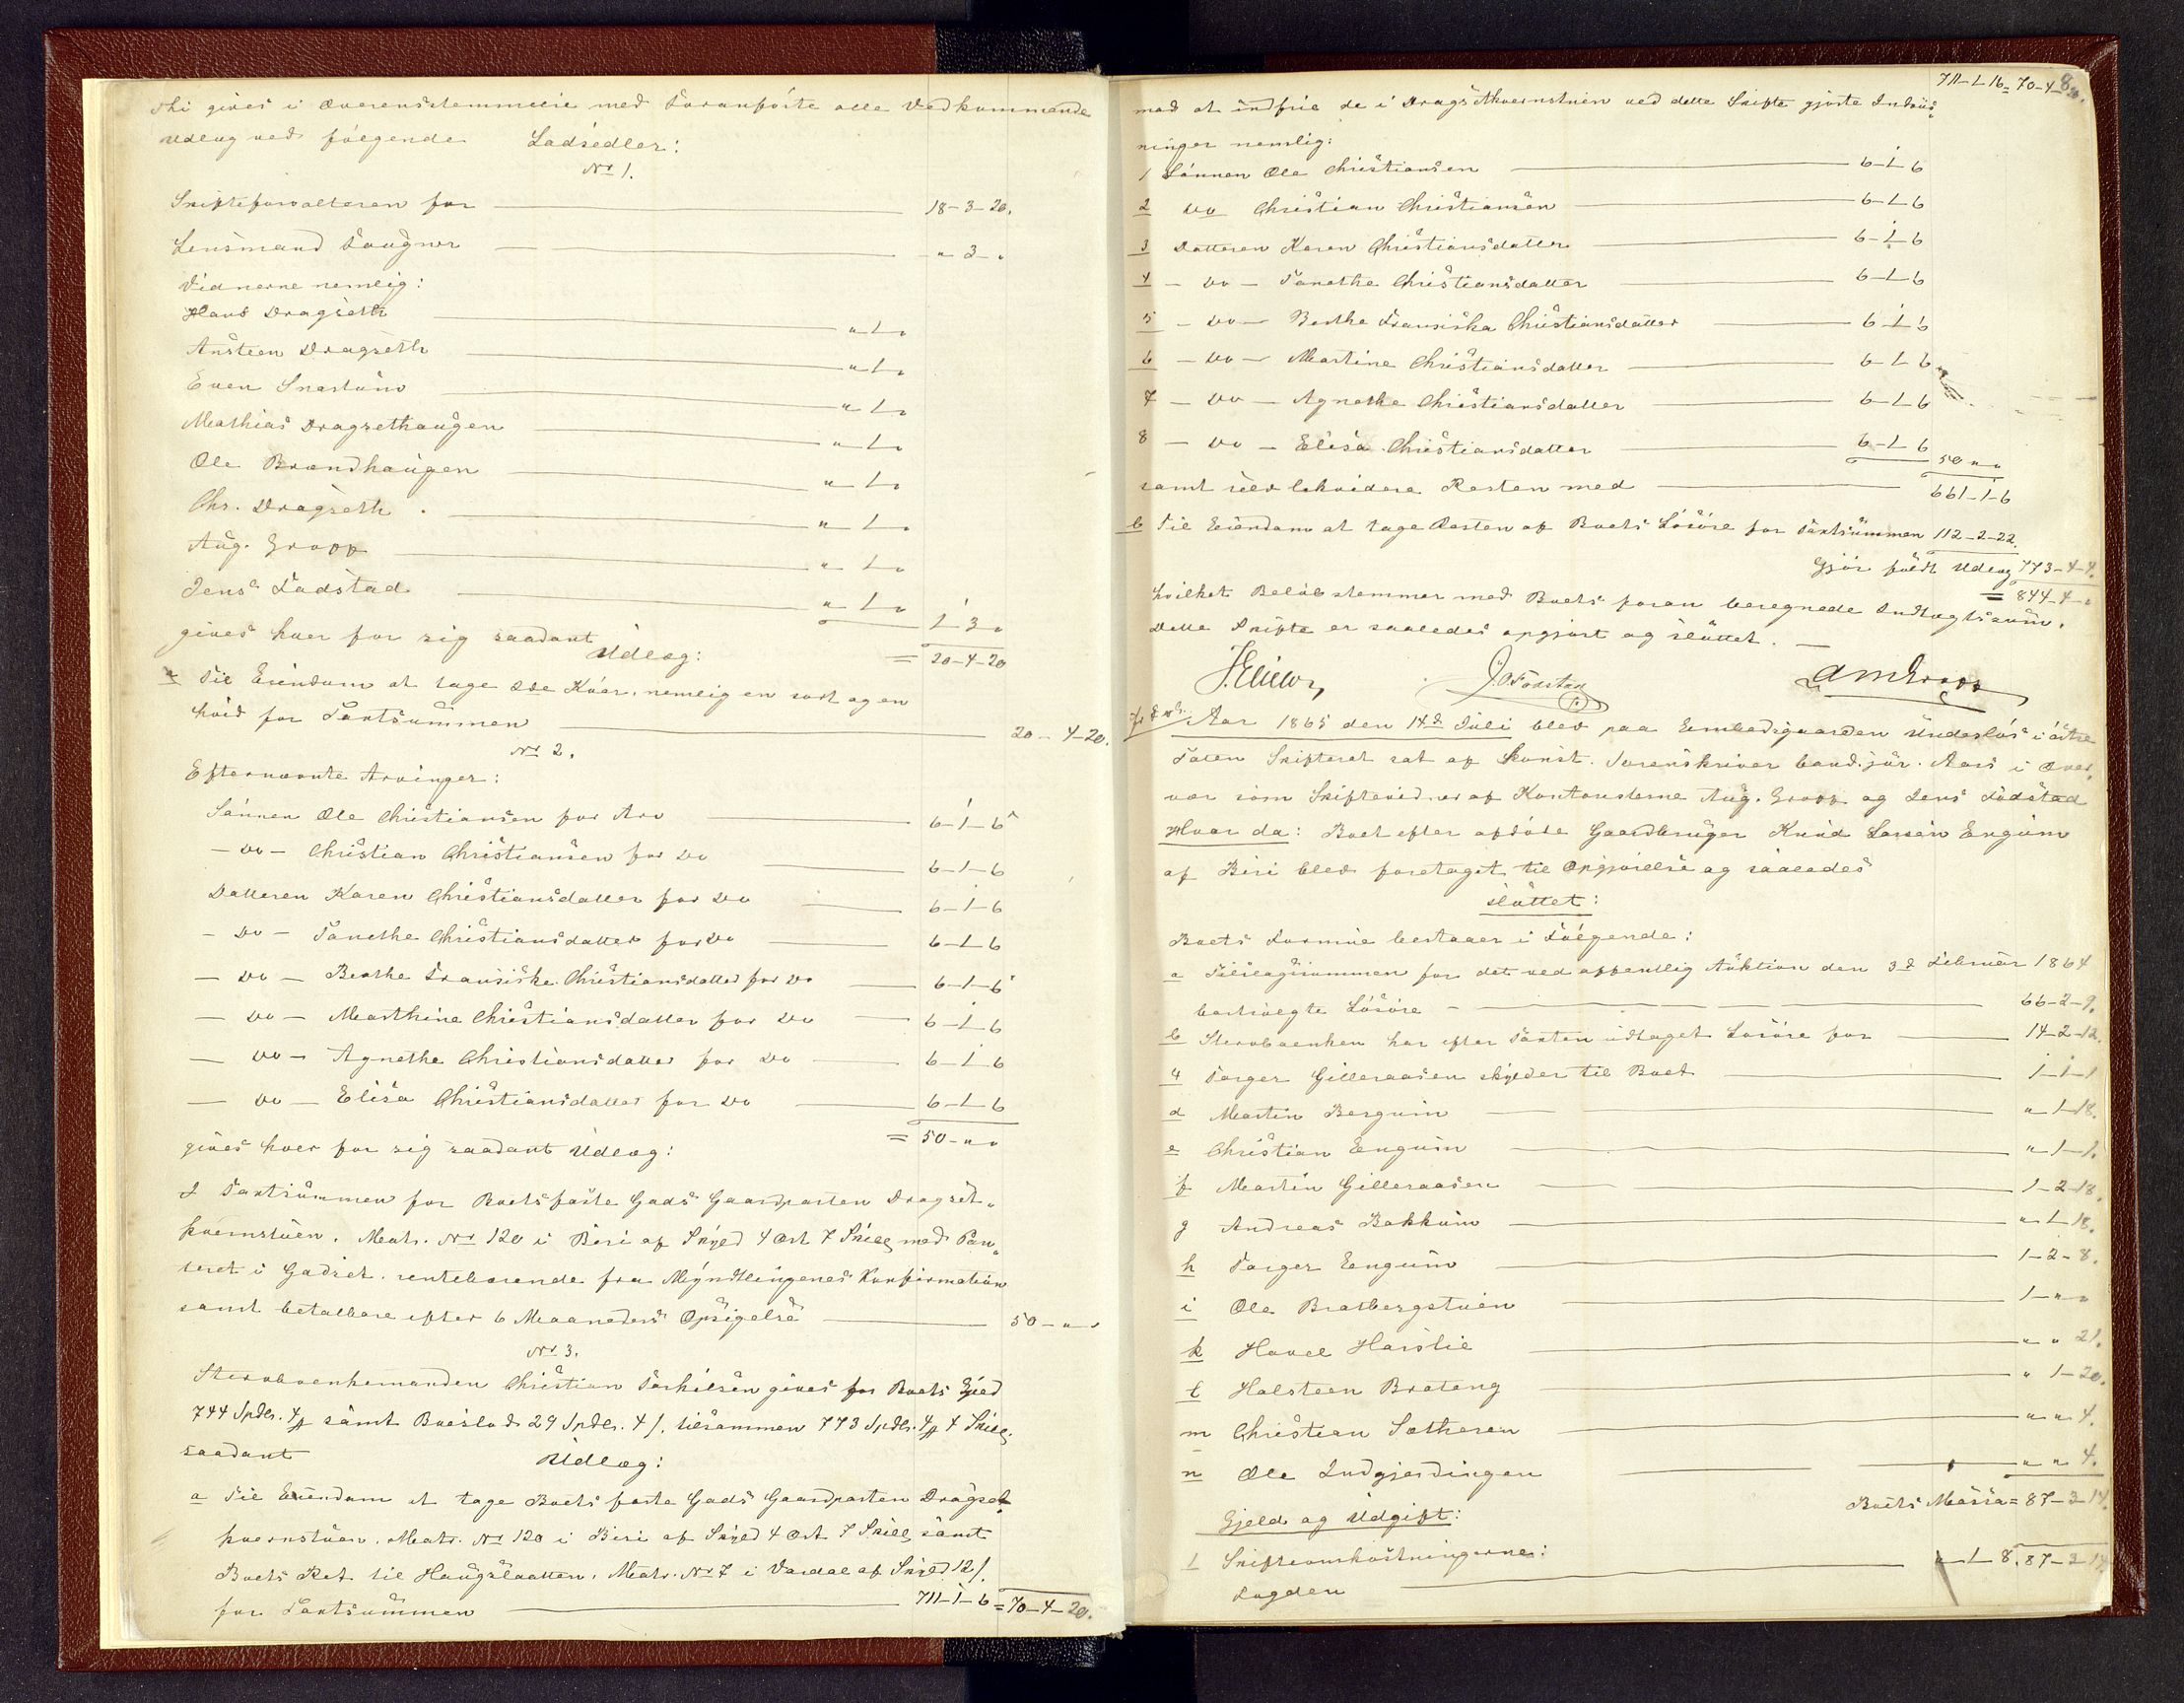 thi gives i Overensstemmelse med Foranførte alle Vedkommende
Udlæg ved følgende Lodsedler:
No 1.
Skifteforvalteren for 18-3-20.
Lensmand Tougner " 3 "
Vidnerne nemlig:
Hans Dragseth " 1 "
Ansteen Dragseth " 1 "
Even Snartum " 1 "
Mathias Dragsethaugen " 1 "
Ole Brændhaugen " 1 "
Chr. Dragseth " 1 "
Aug. Gropp " 1 "
Jens Fodstad " 1 " 1 3 "
gives hver for sig saadant = 20-4-20
Udlæg:
a Til Eiendom at tage 2de Køer, nemlig en sort og en
hvid for Taxtsummen 20-4-20.
No 2.
Efternævnte Arvinger:
Sønnen Ole Christiansen for Arv 6-1-6
- Do - Christian Christiansen for Do 6-1-6
Datteren Karen Christiansdatter for Do 6-1-6
- Do - Tanethe Christiansdatter for Do 6-1-6
- Do - Berthe Fransiska Christiansdatter for Do 6-1-6
- Do - Marthine Christiansdatter for Do 6-1-6
- Do - Agnethe Christiansdatter for Do 6-1-6
- Do - Elisa Christiansdatter for Do 6-1-6
gives hver for sig saadant Udlæg: = 50 - " "
I Taxtsummen for Boets faste Gods Gaardparten Dragset-
kvernstuen, Matr. No 120 i Biri af Skyld 4 Ort 7 Skill med Pan-
teret i Godset, rentebærende fra Myndlingenes Konfirmation
samt betalbare efter 6 Maaneders Opsigelse 50 - " "
No 3.
Sterboenkemanden Christian Torkilsen gives for Boets Gjeld
744 Spdlr. 4 samt Boeslod 29 Spdlr. 4 s. tilsammen 773 Spdlr. 4 4 Skill.
saadant Udlæg:
a Til Eiendom at tage Boets faste Gods Gaardparten Dragset-
kvernstuen, Matr. No 120 i Biri af Skyld 4 Ort 7 Skill samt
Boets Ret til Haugslaatten, Matr. No 7 i Vardal af Skyld 12 s.
for Taxtsummen 711-1-6 = 70-4-20.
711-1-16 = 70-4-20.
8
mod at indfrie de i Dragsetkvernstuen ved dette Skifte gjorte Indvis-
ninger nemlig:
1 Sønnen Ole Christiansen 6-1-6
2 Do Christian Christiansen 6-1-6
3 Datteren Karen Christiansdatter 6-1-6
4 - Do - Tanethe Christiansdatter 6-1-6
5 - Do - Berthe Fransiska Christiansdatter 6-1-6
6 - Do - Martine Christiansdatter 6-1-6
7 - Do - Agnethe Christiansdatter 6-1-6
8 - Do - Elisa Christiansdatter 6-1-6
50 " "
samt selv likvidere Resten med 661-1-6
b Til Eiendom at tage Resten af Boets Løsøre for Taxtsummen 112-2-22.
Gjør fuldt Udlæg 773-4-4.
= 844-4-"
hvilket Beløb stemmer med Boets foran beregnede Indtægtssum.
Dette Skifte er saaledes opgjort og sluttet.
J. Fodstad A M Gropp
Aar 1865 den 14d Juli blev paa Embedsgaarden Undeslös i østre
Toten Skifteret sat af konst. Sorenskriver cand. jur. Aars i Over-
vær som Skiftevidner af Kontoristerne Aug. Gropp og Jens Fodstad
Hvor da: Boet efter afdøde Gaardbruger Knud Larsen Engum
af Biri blev foretaget til Opgjørelse og saaledes
sluttet:
Boets Formue bestaaer i Følgende:
a Tilslagssummen for det ved offentlig Auktion den 3d Februar 1864
bortsolgte Løsøre 66-2-9.
b Sterboenken har efter Taxten udtaget Løsøre for 14-2-12.
4 Torger Gilleraasen skylder til Boet 1-1-1
d Martin Bergum " 1-18.
e Christian Engum " 1-1.
f Martin Gilleraasen 1-2-18.
g Andreas Bakkum " 1 18.
h Torger Engum 1-2-8.
i Ole Bratbergstuen 1-" "
k Havel Harslie " " 21.
l Halsteen Brateng " 1-20.
m Christian Sætheren " " 4.
n Ole Indgjerdingen " " 4.
Boets Massa = 87-3-14.
Gjeld og Udgift:
1 Skifteomkostningerne:
Fogden " 1 8. 87-3-14.